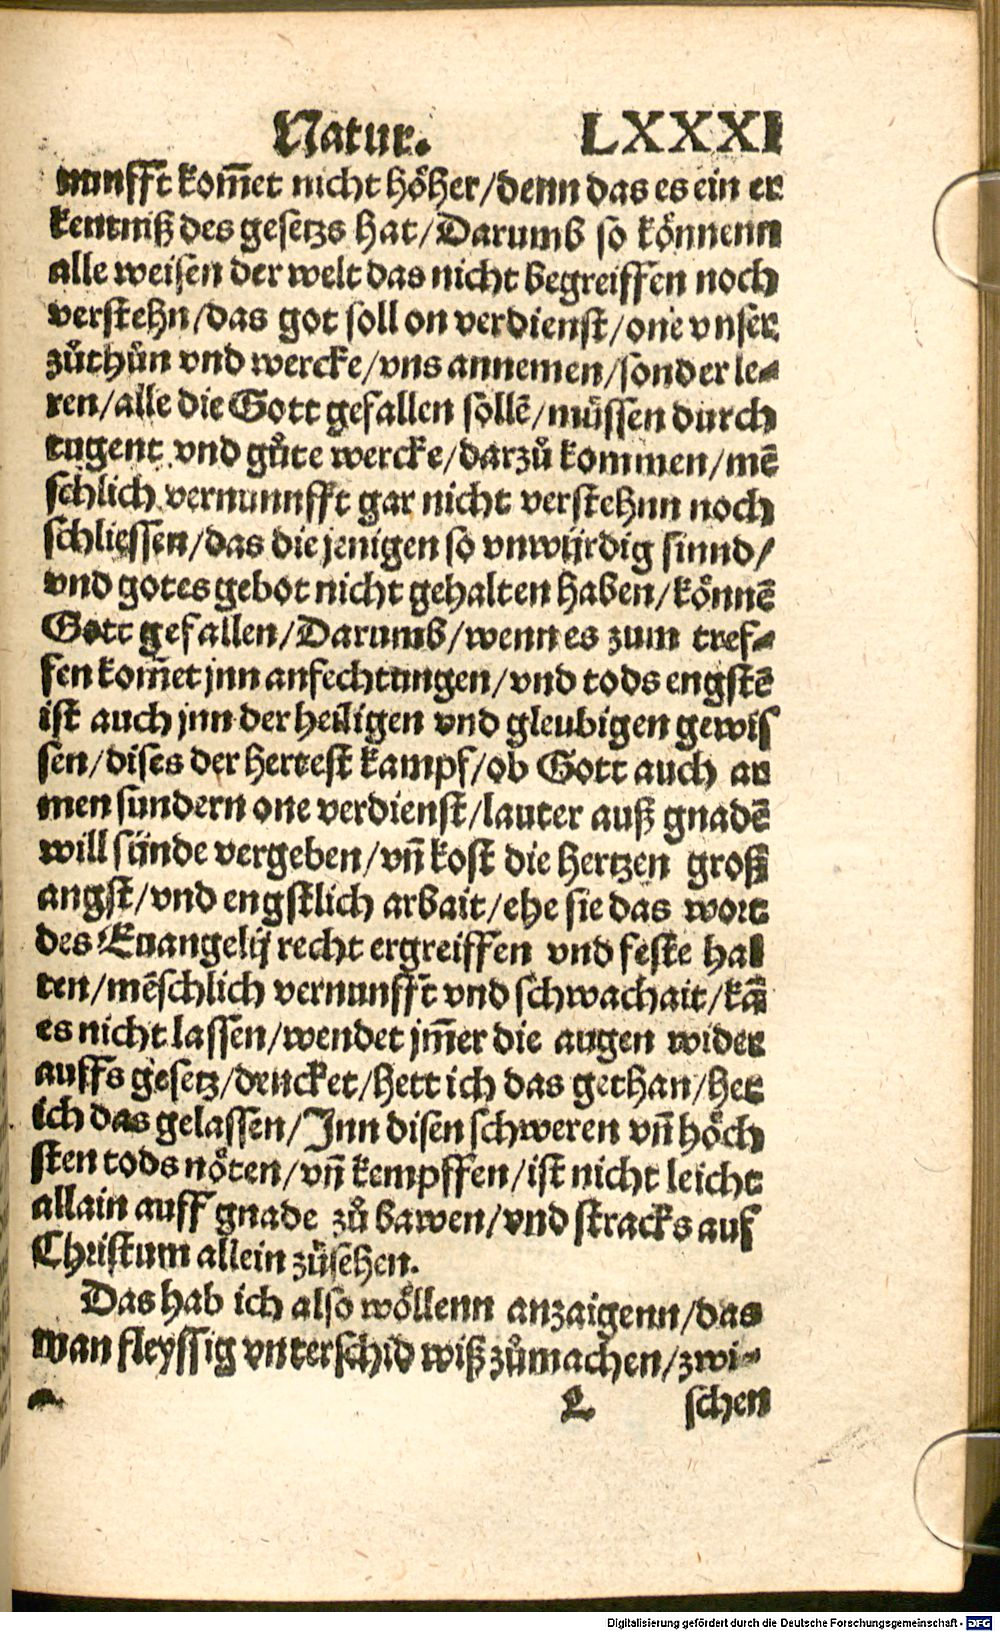 Natur. LXXXI
nunfft kom̃et nicht höher/denn das es ein er
kentniß des gesetzs hat/Darumb so könnenn
alle weisen der welt das nicht begreiffen noch
verstehn/das got soll on verdienst/one vnser
zůthůn vnd wercke/vns annemen/sonder le-
ren/alle die Gott gefallen sollē/müssen durch
tugent vnd gůte wercke/darzů kommen/mē
schlich vernunnfft gar nicht verstehnn noch
schliessen/das die jenigen so vnwijrdig sinnd/
vnd gotes gebot nicht gehalten haben/könnē
Gott gefallen/Darumb/wenn es zum tref-
fen kom̃et jnn anfechtungen/vnd tods engstē
ist auch jnn der heiligen vnd gleubigen gewis
sen/dises der hertest kampf/ob Gott auch ar
men sundern one verdienst/lauter auß gnadē
will sijnde vergeben/vñ kost die hertzen groß
angst/vnd engstlich arbait/ehe sie das wort
des Euangelij recht ergreiffen vnd feste hal
ten/mēschlich vernunfft vnd schwachait/kā
es nicht lassen/wendet jm̃er die augen wider
auffs gesetz/dencket/hett ich das gethan/het
ich das gelassen/Jnn disen schweren vñ höch
sten tods nöten/vñ kempffen/ist nicht leicht
allain auff gnade zů bawen/vnd stracks auf
Christum allein zůsehen.
Das hab ich also wöllenn anzaigenn/das
man fleyssig vnterschid wiß zůmachen/zwi-
L schen
Digitalisierung gefördert durch die Deutsche Forschungsgemeinschaft - DFG